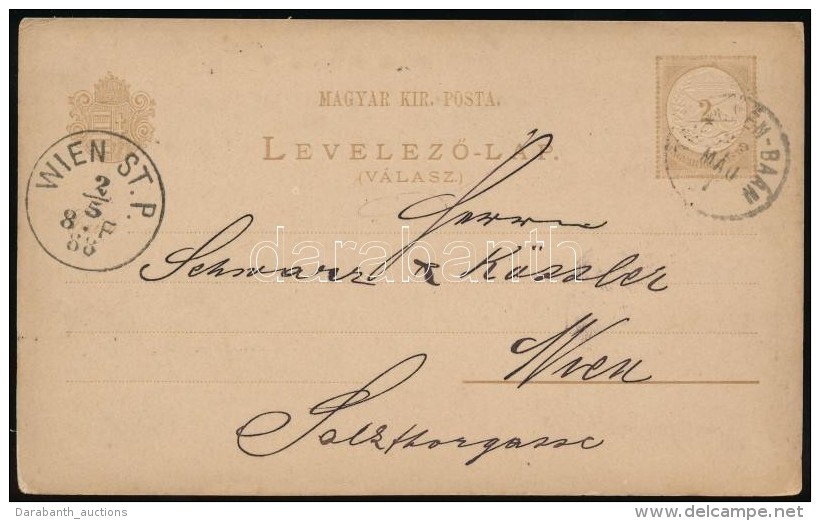 MAGYAR KIR. POSTA.
LEVELEZŐ-LAP.
(VÁLASZ.)
2
MÁJ
WIEN ST. P.
2/5
8. F
88
Herrn
Schwarz & Kössler
Wien
Salzthorgasse
darabanth
Darabanth_auctions
delcampe.net